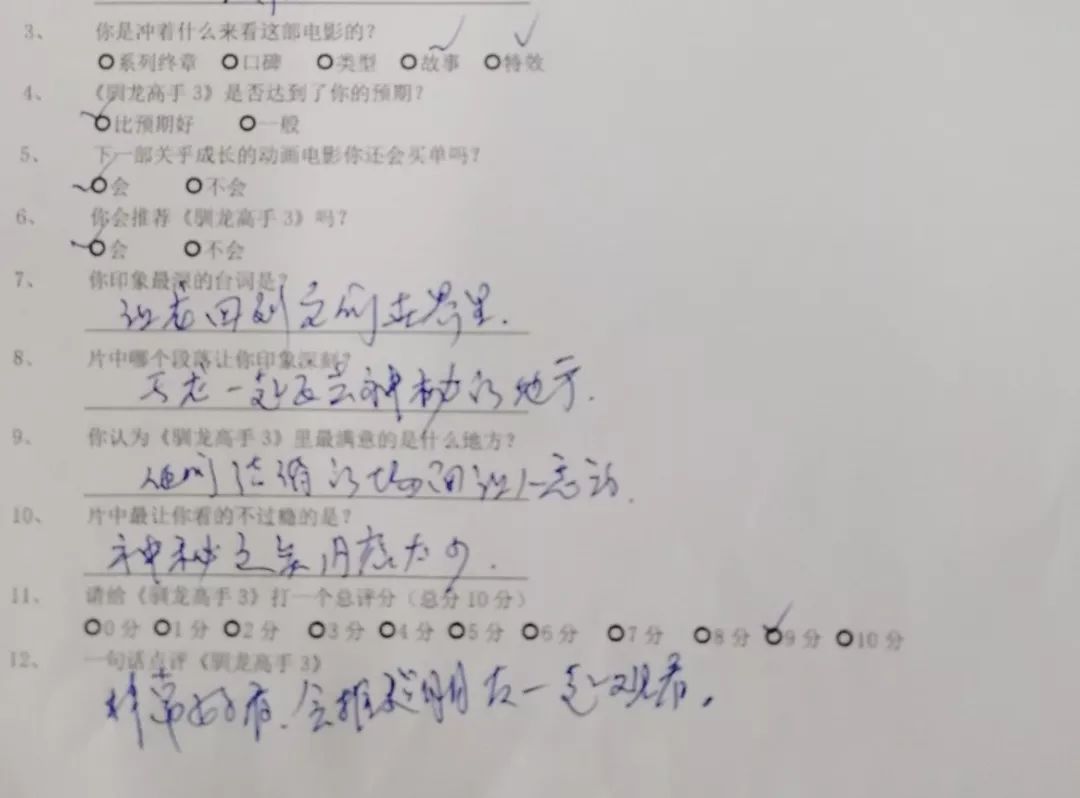 3、 你是冲着什么来看这部电影的?
系列终章 口碑 类型 故事 特效
4、 《驯龙高手3》是否达到了你的预期?
比预期好 一般
5、 下一部关乎成长的动画电影你还会买单吗?
会 不会
6、 你会推荐《驯龙高手3》吗?
会 不会
7、 你印象最深的台词是?
让龙回到它们世界里.
8、 片中哪个段落让你印象深刻?
龙一起飞去神秘的地方.
9、 你认为《驯龙高手3》里最满意的是什么地方?
他们结婚的场面让人感动.
10、 片中最让你看的不过瘾的是?
神秘之境内容太少.
11、 请给《驯龙高手3》打一个总评分(总分10分)
0分 1分 2分 3分 4分 5分 6分 7分 8分 9分 10分
12、 一句话点评《驯龙高手3》
非常好看.会推荐朋友一起观看。